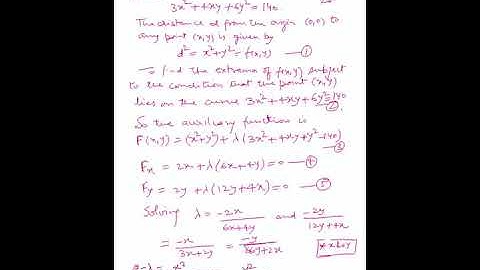 3x² + 4xy + 6y² = 140
The distance d from the origin (0,0) to
any point (x,y) is given by
d² = x² + y² = f(x,y) — ①
To find the extrema of f(x,y) subject
to the condition that the point (x,y)
lies on the curve 3x² + 4xy + 6y² = 140
②
So the auxiliary function is
F(x,y) = (x² + y²) + λ(3x² + 4xy + y² - 140)
③
Fx = 2x + λ(6x + 4y) = 0 — ④
Fy = 2y + λ(12y + 4x) = 0 — ⑤
Solving λ = -2x / 6x+4y and -2y / 12y+4x
= -x / 3x+2y = -y / 6y+2x